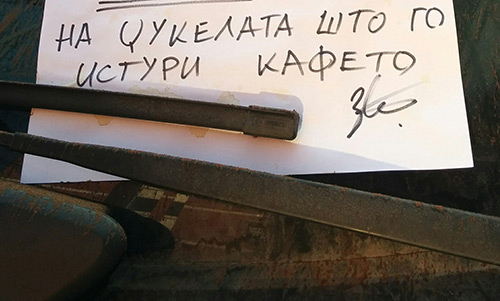 НА ЏУКЕЛАТА ШТО ГО
ИСТУРИ КАФЕТО